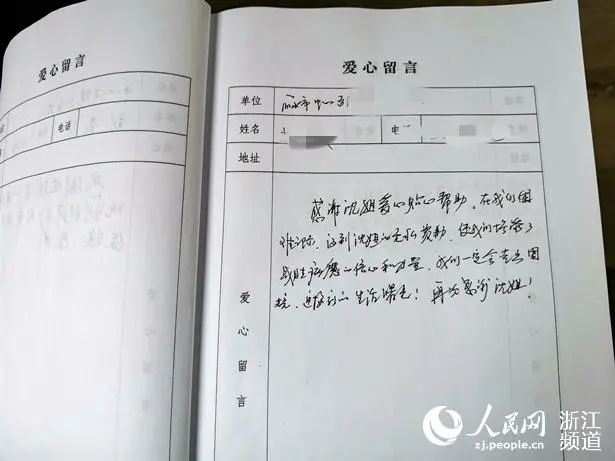 爱心留言
电话
爱心留言
单位
丽水市中心
姓名
电
地址
爱心留言
感谢沈姐爱心贴心帮助,在我们困
难之际,得到沈姐的无私资助,使我们增添了
战胜病魔的信心和力量,我们一定会走出困
境,迎接新的生活曙光!再次感谢沈姐!
人民网
zj.people.cn
浙江
频道